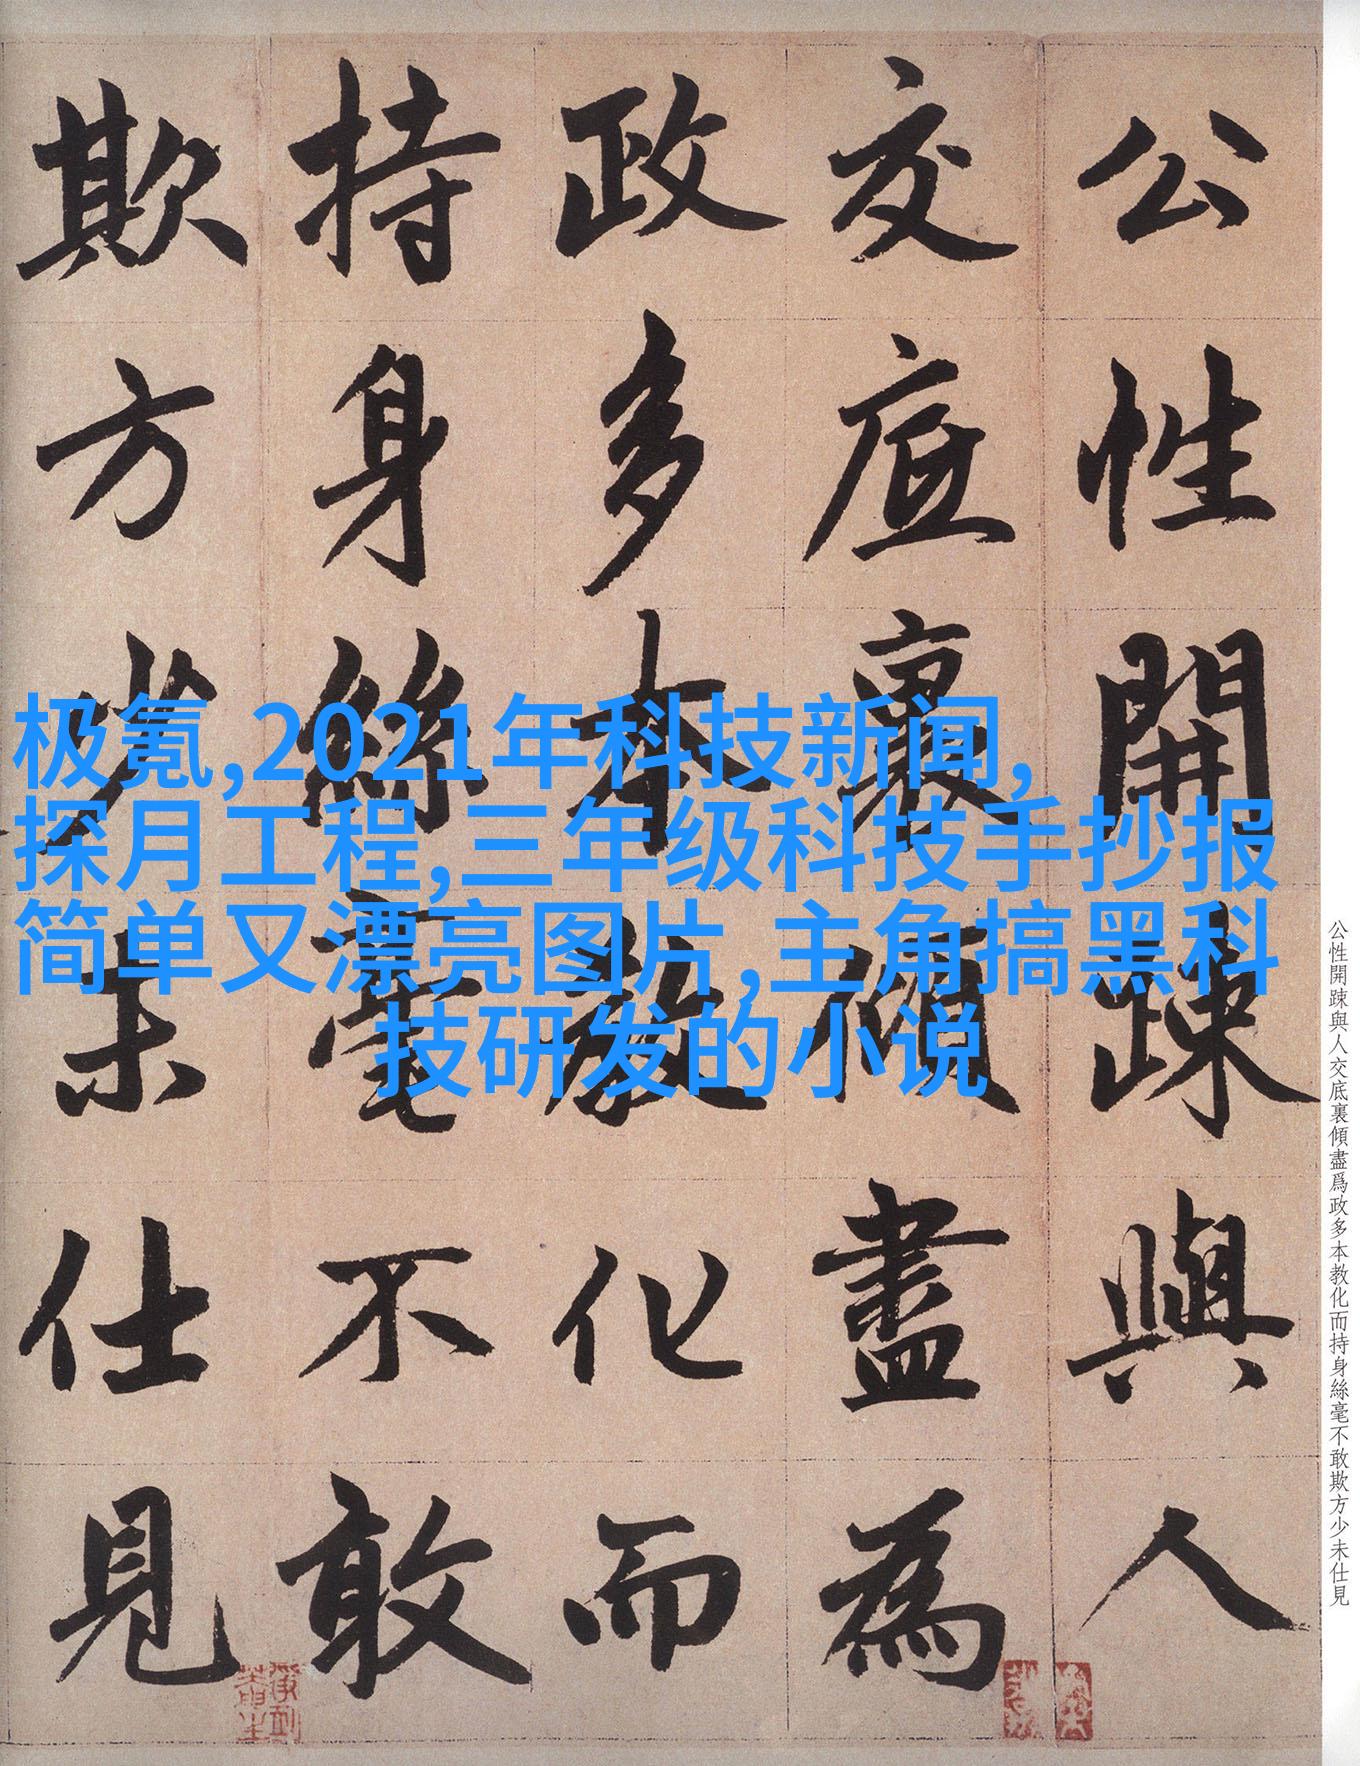 公性開踈與人
交底裏傾盡為
政多本教化而
持身絲毫不敢
欺方少未仕見
极氪,2021年科技新闻,
探月工程,三年级科技手抄报
简单又漂亮图片,主角搞黑科
技研发的小说
公性開踈與人交底裏傾盡爲政多本教化而持身絲毫不敢欺方少未仕見